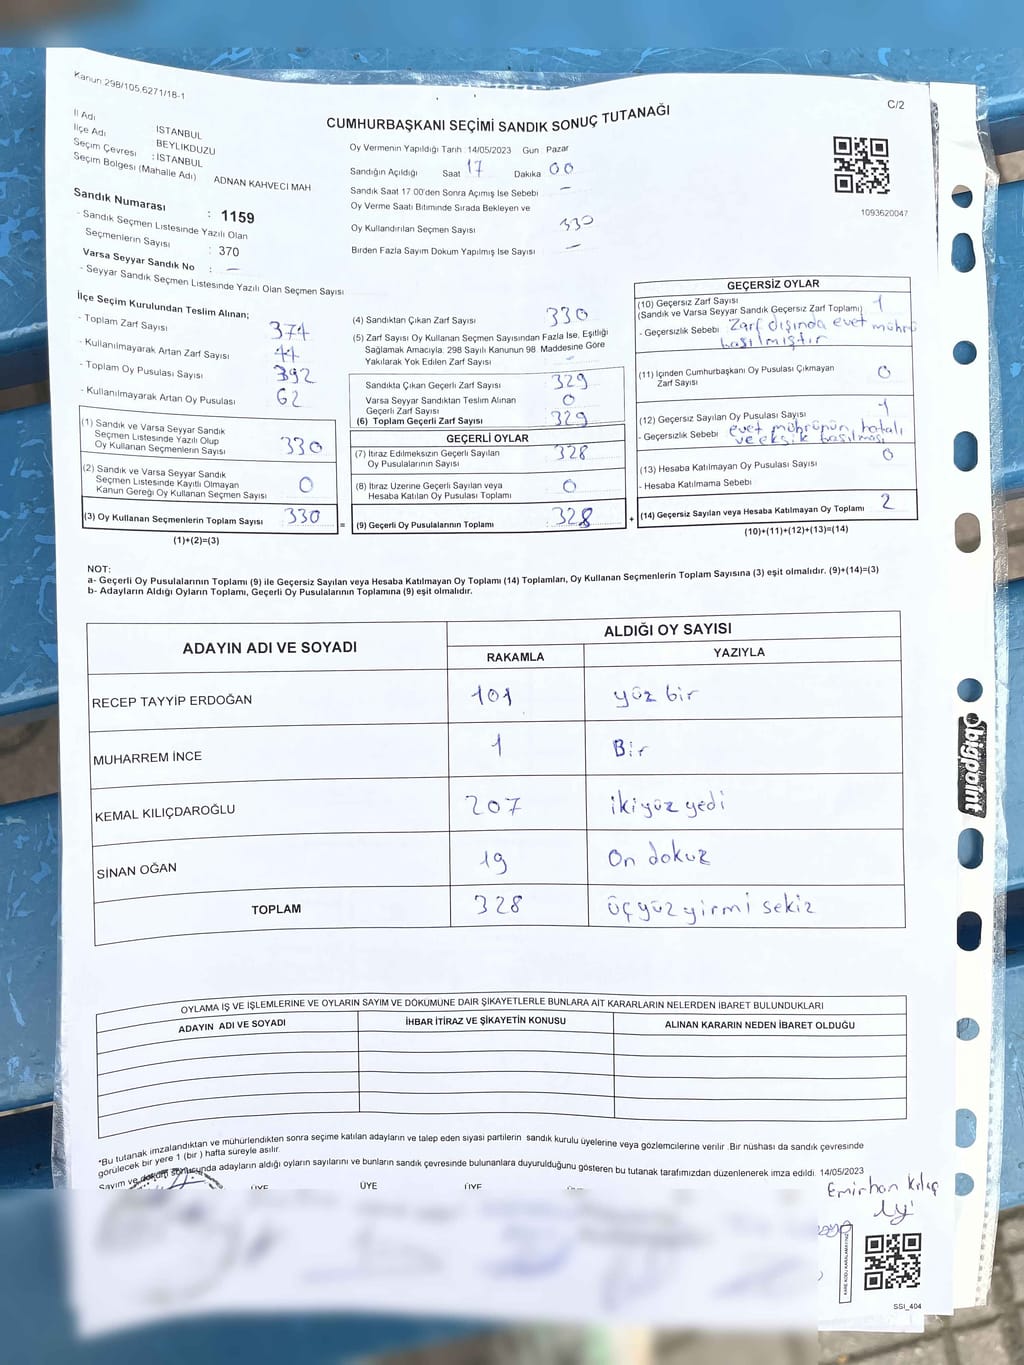 Kanun 298/105.6271/18-1
C/2
CUMHURBAŞKANI SEÇİMİ SANDIK SONUÇ TUTANAĞI
İl Adı İSTANBUL
İlçe Adı BEYLİKDÜZÜ
Seçim Çevresi : İSTANBUL
Seçim Bölgesi (Mahalle Adı) ADNAN KAHVECİ MAH
Oy Vermenin Yapıldığı Tarih : 14/05/2023 Gün : Pazar
Sandığın Açıldığı Saat 17 Dakika 00
Sandık Saat 17 00'den Sonra Açımış İse Sebebi –
Oy Verme Saati Bitiminde Sırada Bekleyen ve
Oy Kullandırılan Seçmen Sayısı 330
Birden Fazla Sayım Döküm Yapılmış İse Sayısı –
1093620047
Sandık Numarası : 1159
- Sandık Seçmen Listesinde Yazılı Olan
Seçmenlerin Sayısı : 370
Varsa Seyyar Sandık No : –
- Seyyar Sandık Seçmen Listesinde Yazılı Olan Seçmen Sayısı
İlçe Seçim Kurulundan Teslim Alınan;
- Toplam Zarf Sayısı 374
- Kullanılmayarak Artan Zarf Sayısı 44
- Toplam Oy Pusulası Sayısı 392
- Kullanılmayarak Artan Oy Pusulası 62
(1) Sandık ve Varsa Seyyar Sandık
Seçmen Listesinde Yazılı Olup
Oy Kullanan Seçmenlerin Sayısı 330
(2) Sandık ve Varsa Seyyar Sandık
Seçmen Listesinde Kayıtlı Olmayan
Kanun Gereği Oy Kullanan Seçmen Sayısı 0
(3) Oy Kullanan Seçmenlerin Toplam Sayısı 330 =
(1)+(2)=(3)
(4) Sandıktan Çıkan Zarf Sayısı 330
(5) Zarf Sayısı Oy Kullanan Seçmen Sayısından Fazla İse, Eşitliği
Sağlamak Amacıyla. 298 Sayılı Kanunun 98. Maddesine Göre
Yakılarak Yok Edilen Zarf Sayısı –
Sandıkta Çıkan Geçerli Zarf Sayısı 329
Varsa Seyyar Sandıktan Teslim Alınan
Geçerli Zarf Sayısı 0
(6) Toplam Geçerli Zarf Sayısı 329
GEÇERLİ OYLAR
(7) İtiraz Edilmeksizin Geçerli Sayılan
Oy Pusulalarının Sayısı 328
(8) İtiraz Üzerine Geçerli Sayılan veya
Hesaba Katılan Oy Pusulası Toplamı 0
(9) Geçerli Oy Pusulalarının Toplamı 328 +
GEÇERSİZ OYLAR
(10) Geçersiz Zarf Sayısı 1
(Sandık ve Varsa Seyyar Sandık Geçersiz Zarf Toplamı)
- Geçersizlik Sebebi Zarf dışında evet mührü
basılmıştır
(11) İçinden Cumhurbaşkanı Oy Pusulası Çıkmayan
Zarf Sayısı 0
(12) Geçersiz Sayılan Oy Pusulası Sayısı 1
- Geçersizlik Sebebi evet mührünün, hatalı
ve eksik basılması
(13) Hesaba Katılmayan Oy Pusulası Sayısı 0
- Hesaba Katılmama Sebebi
(14) Geçersiz Sayılan veya Hesaba Katılmayan Oy Toplamı 2
(10)+(11)+(12)+(13)=(14)
NOT:
a- Geçerli Oy Pusulalarının Toplamı (9) ile Geçersiz Sayılan veya Hesaba Katılmayan Oy Toplamı (14) Toplamları, Oy Kullanan Seçmenlerin Toplam Sayısına (3) eşit olmalıdır. (9)+(14)=(3)
b- Adayların Aldığı Oyların Toplamı, Geçerli Oy Pusulalarının Toplamına (9) eşit olmalıdır.
ADAYIN ADI VE SOYADI
ALDIĞI OY SAYISI
RAKAMLA YAZIYLA
RECEP TAYYİP ERDOĞAN 101 yüz bir
MUHARREM İNCE 1 Bir
KEMAL KILIÇDAROĞLU 207 iki yüz yedi
SİNAN OĞAN 19 On dokuz
TOPLAM 328 üç yüz yirmi sekiz
bigpoint
OYLAMA İŞ VE İŞLEMLERİNE VE OYLARIN SAYIM VE DÖKÜMÜNE DAİR ŞİKAYETLERLE BUNLARA AİT KARARLARIN NELERDEN İBARET BULUNDUKLARI
ADAYIN ADI VE SOYADI İHBAR İTİRAZ VE ŞİKAYETİN KONUSU ALINAN KARARIN NEDEN İBARET OLDUĞU
*Bu tutanak imzalandıktan ve mühürlendikten sonra seçime katılan adayların ve talep eden siyasi partilerin sandık kurulu üyelerine veya gözlemcilerine verilir .Bir nüshası da sandık çevresinde
görülecek bir yere 1 (bir ) hafta süreyle asılır.
Sayım ve döküm sonucunda adayların aldığı oyların sayılarını ve bunların sandık çevresinde bulunanlara duyurulduğunu gösteren bu tutanak tarafımızdan düzenlenerek imza edildi. 14/05/2023
ÜYE ÜYE ÜYE
Emirhan Kılıç
KARE KODU KARALAMAYINIZ
SSI_404